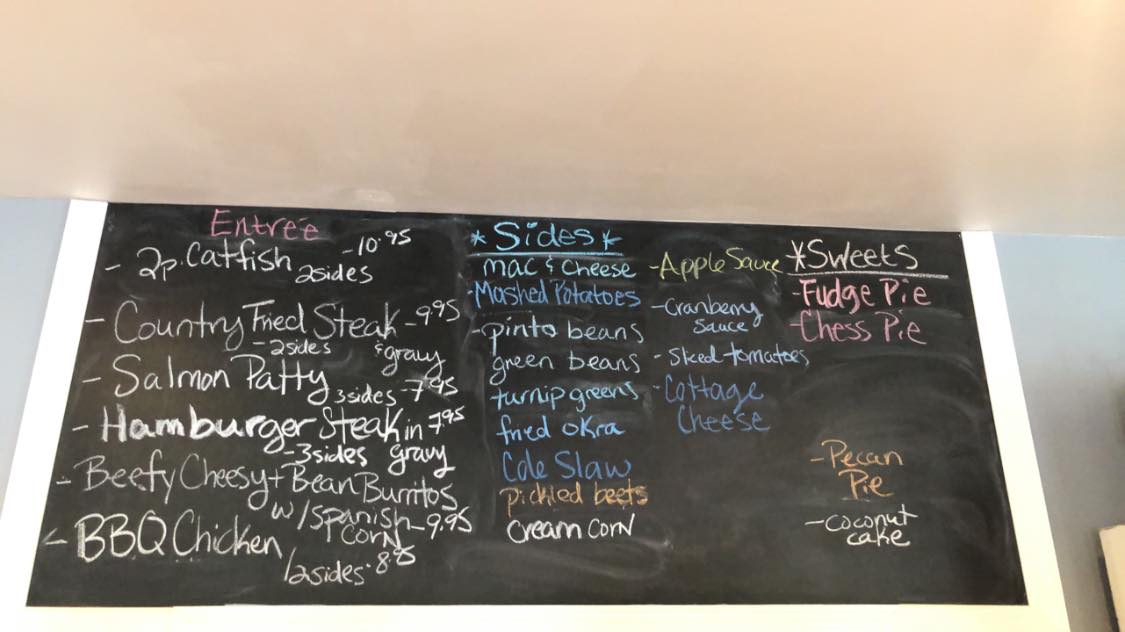 Entrée
- 2p. Catfish - 10.95
2sides
- Country Fried Steak - 9.95
- 2sides & gravy
- Salmon Patty
3sides - 7.95
- Hamburger Steak in 7.95
- 3sides gravy
- Beefy Cheesy + Bean Burritos
w/ Spanish - 9.95
Corn
- BBQ Chicken
/2sides.
*Sides*
Mac & Cheese
- Mashed Potatoes
- pinto beans
green beans
turnip greens
fried okra
Cole Slaw
pickled beets
Cream Corn
- Apple Sauce
- Cranberry
Sauce
- Sliced tomatoes
- Cottage
Cheese
*Sweets
- Fudge Pie
- Chess Pie
- Pecan
Pie
- coconut
cake